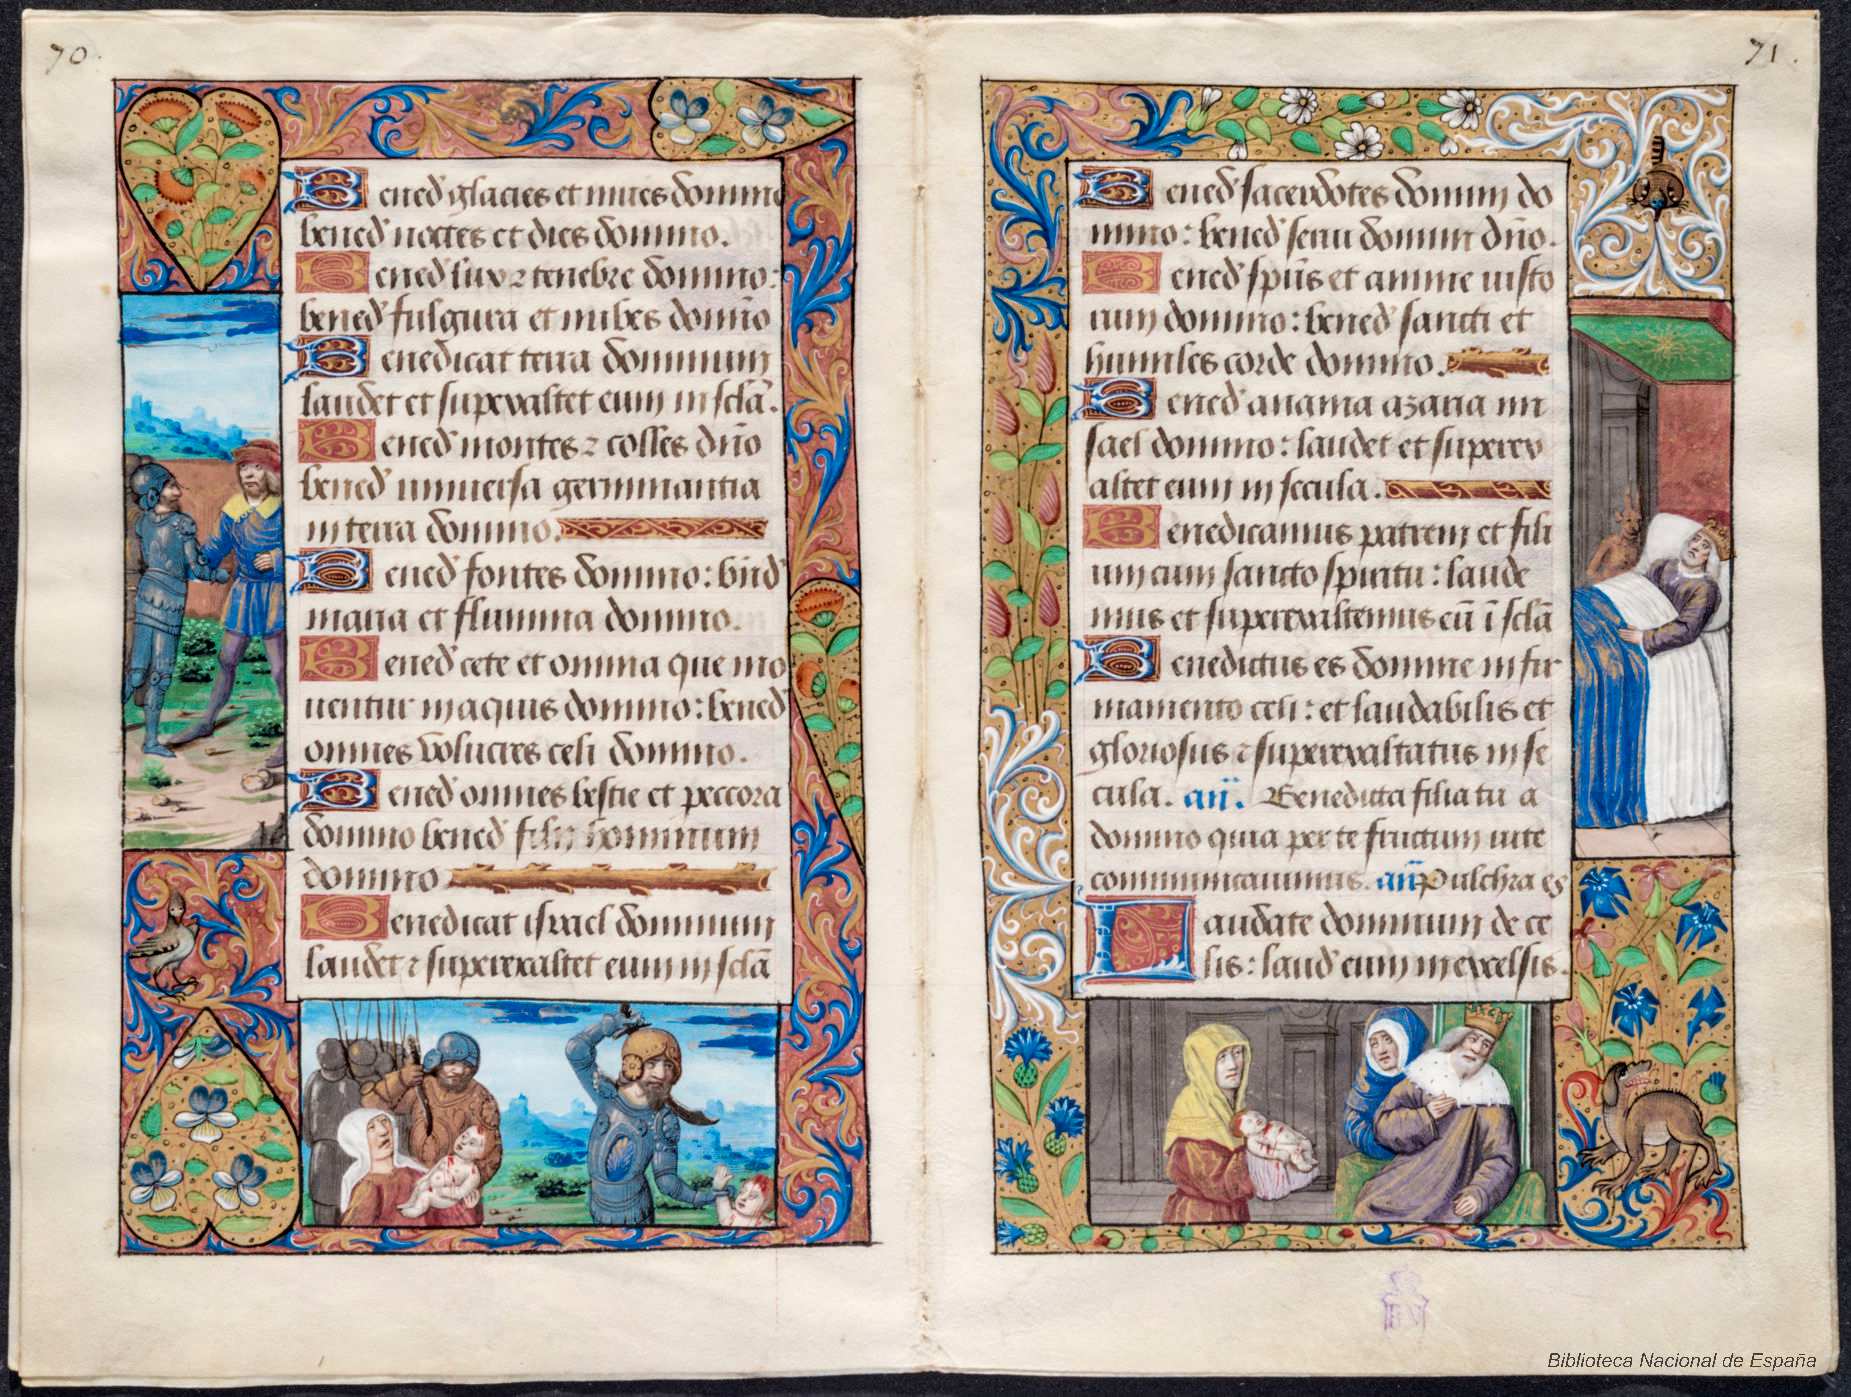 70.
Bened' glacies et niues domino
bened' noctes et dies domino.
Bened' lux ⁊ tenebre domino:
bened' fulgura et nubes domiño
Benedicat terra dominum
laudet et superexaltet eum in sclã.
Bened' montes ⁊ colles dño
bened' uniuersa germinantia
in terra domino.
Bened' fontes domino: bñd'
maria et flumina domino.
Bened' cete et omnia que mo
uentur in aquis domino: bened'
omnes volucres celi domino.
Bened' omnes bestie et peccora
domino bened' filii hominum
domino
Benedicat israel dominum
laudet ⁊ superexaltet eum in sclã
71.
Bened' sacerdotes domini do
mino: bened' serui domini dño.
Bened' spũs et anime iusto
rum domino: bened' sancti et
humiles corde domino.
Bened' anania azaria mi
sael domino: laudet et superex
altet eum in secula.
Benedicamus patrem et fili
um cum sancto spiritu: laude
mus et superexaltemus eũ ĩ sclã
Benedictus es domine in fir
mamento celi: et laudabilis et
gloriosus ⁊ superexaltatus in se
cula. añ. Benedicta filia tu a
domino quia per te fructum uite
communicauimus. añ Pulchra es
Laudate dominum de ce
lis: laud' eum in excelsis.
Biblioteca Nacional de España